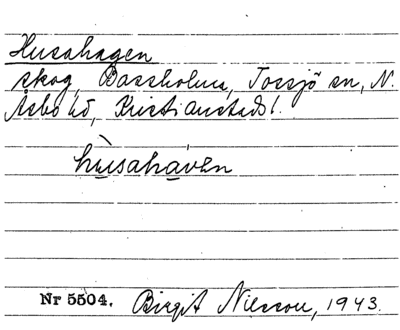 Husahagen
skog, Bassholma, Tossjö sn, N.
Åsbo hd, Kristianstads l.
hùsahàvèn
Nr 5504. Birgit Nilsson, 1943.